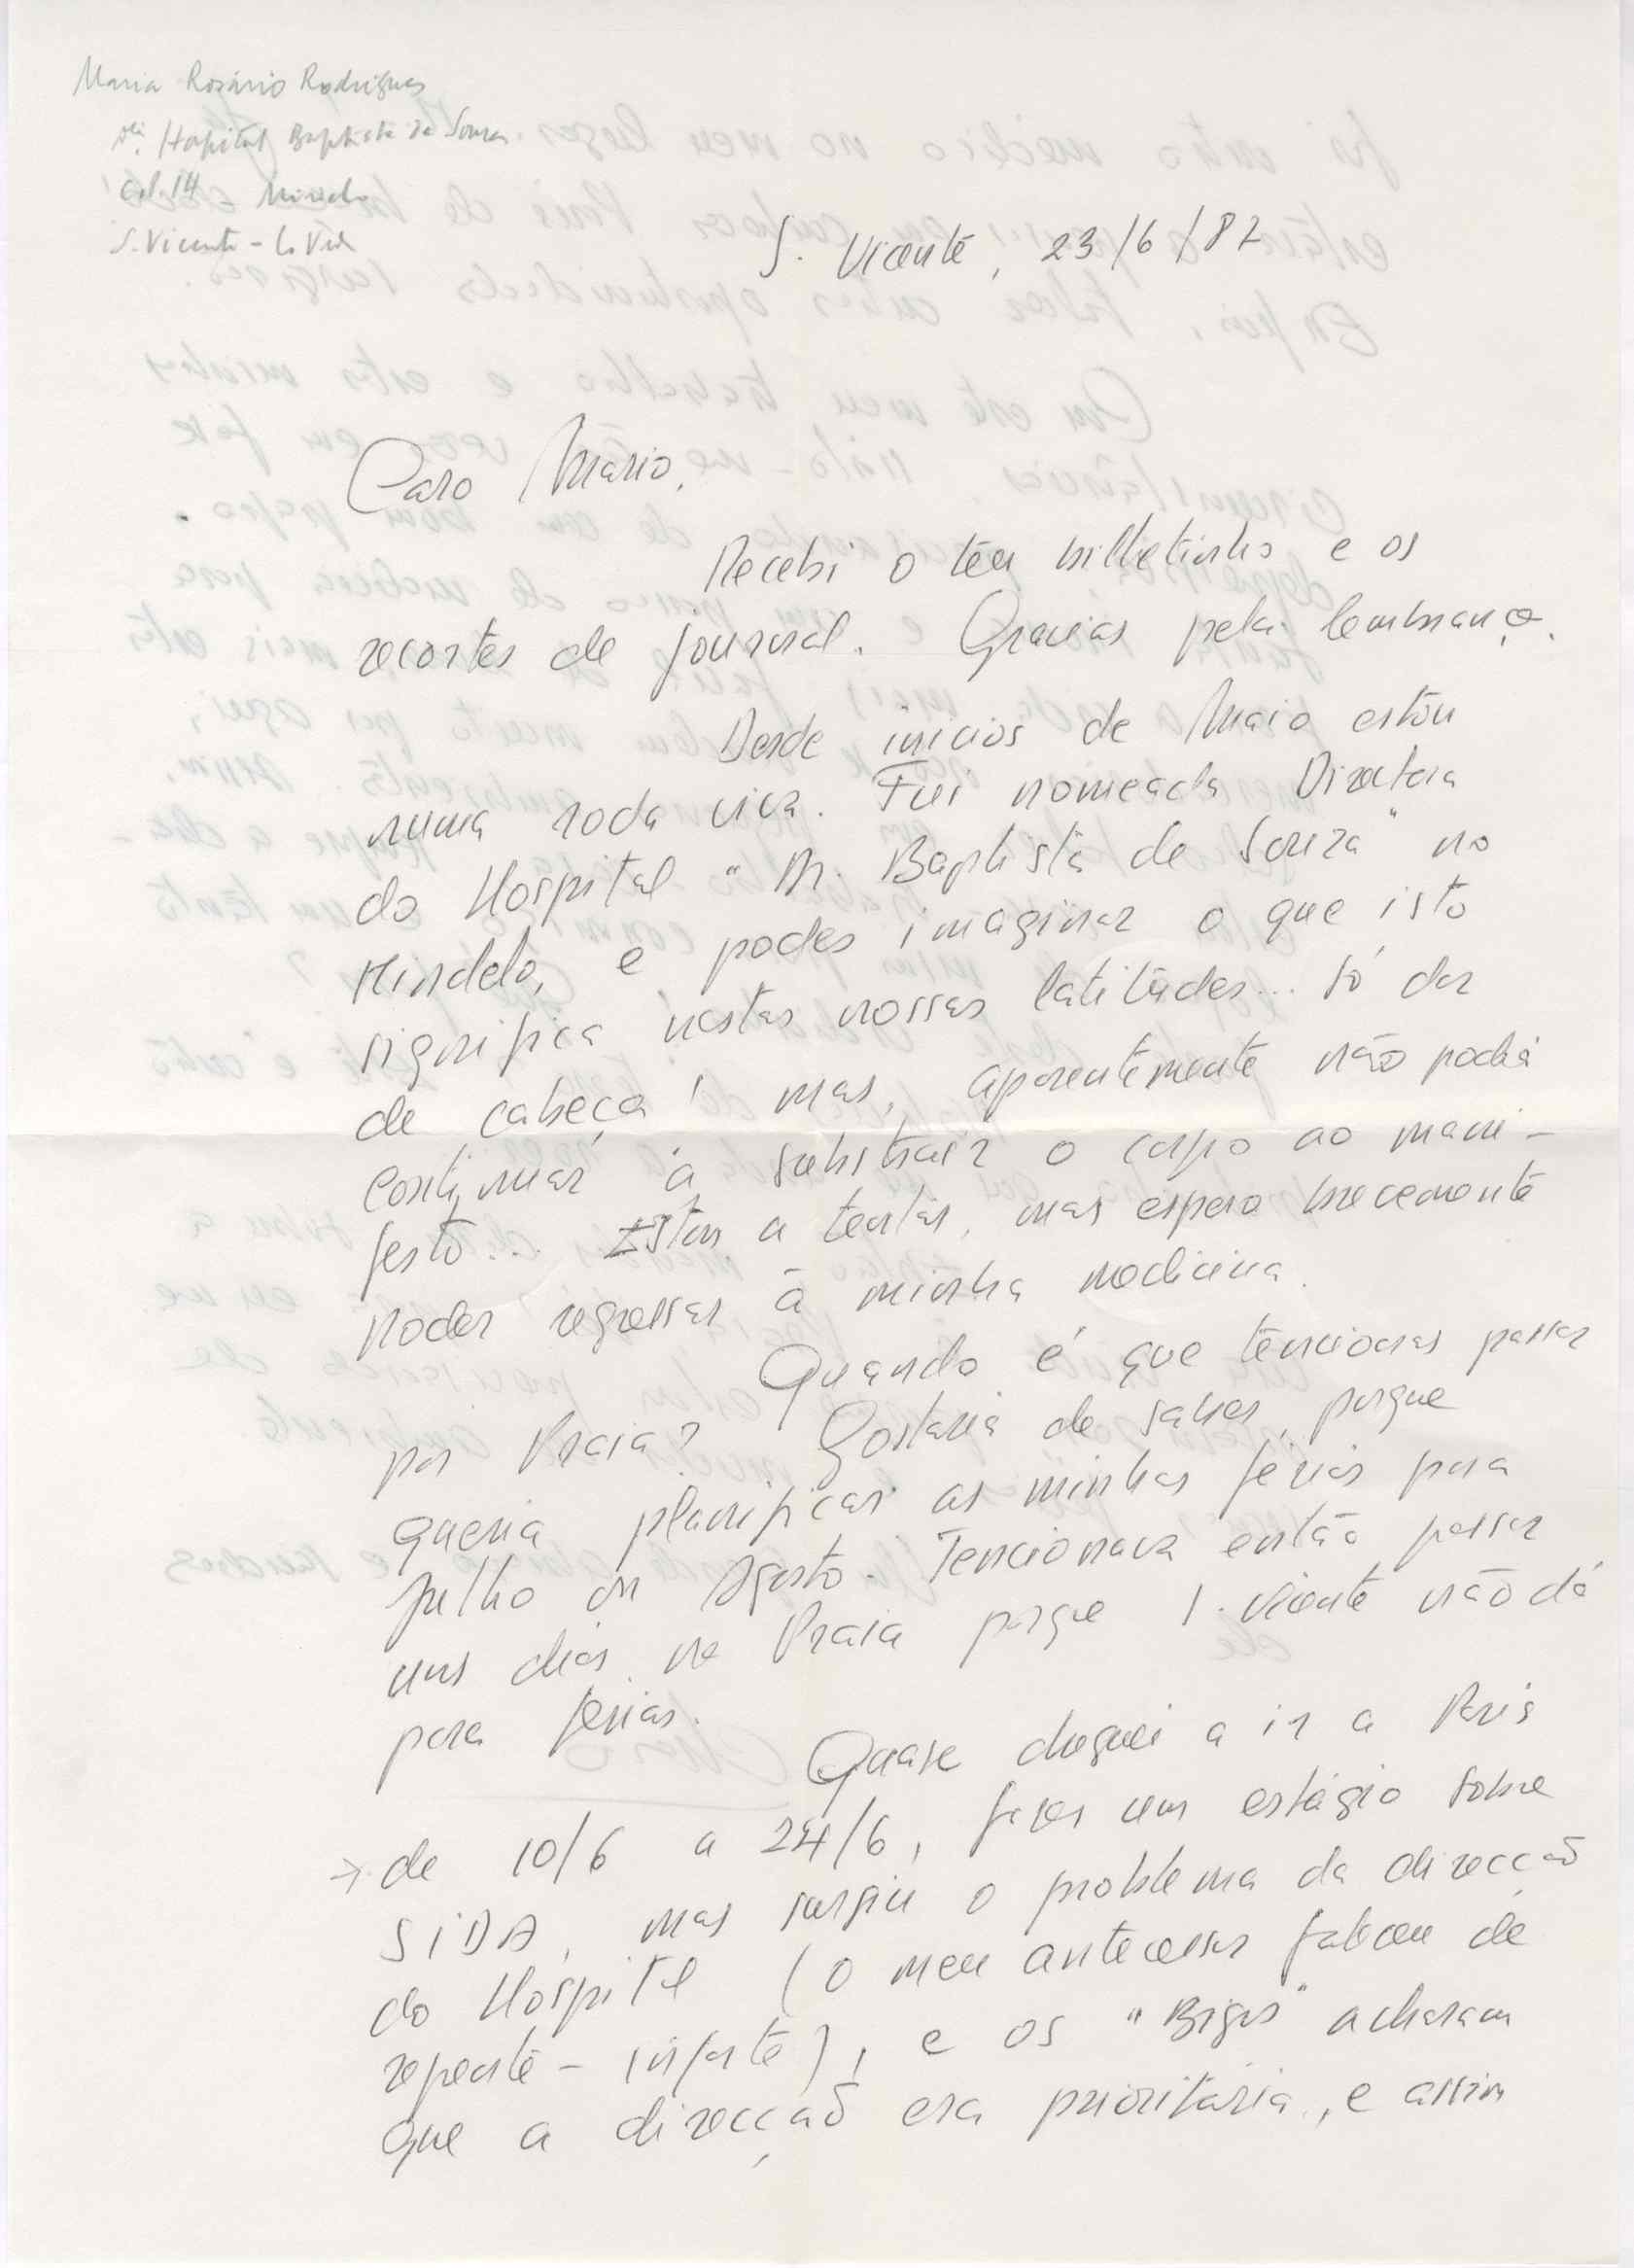 Maria Rosário Rodrigues
Hospital Baptista de Sousa
C.P. 14 - Mindelo
S. Vicente - C. Verde
S. Vicente, 23/6/87
Caro Mário,
Recebi o teu bilhetinho e os
recortes de journal. Gracias pela lembrança.
Desde inicios de Maio estou
numa roda viva. Fui nomeada Directora
do Hospital "Dr. Baptista de Souza" no
Mindelo, e podes imaginar o que isto
significa nestas nossas latitudes... só dor
de cabeça! mas, aparentemente não podia
continuar a substrair o corpo ao mani-
festo... Estou a tentar, mas espero brevemente
poder regressar à minha medicina.
Quando é que tencionas passar
por Praia? Gostaria de saber, porque
queria planificar as minhas férias para
Julho ou Agosto. Tencionava então passar
uns dias na Praia porque S. Vicente não dá
para férias.
Quase cheguei a ir a Paris
→ de 10/6 a 24/6, fazer um estágio sobre
SIDA, mas surgiu o problema da direcção
do Hospital (o meu antecessor faleceu de
repente - infarte), e os "Bigs" acharam
que a direcção era prioritária, e assim